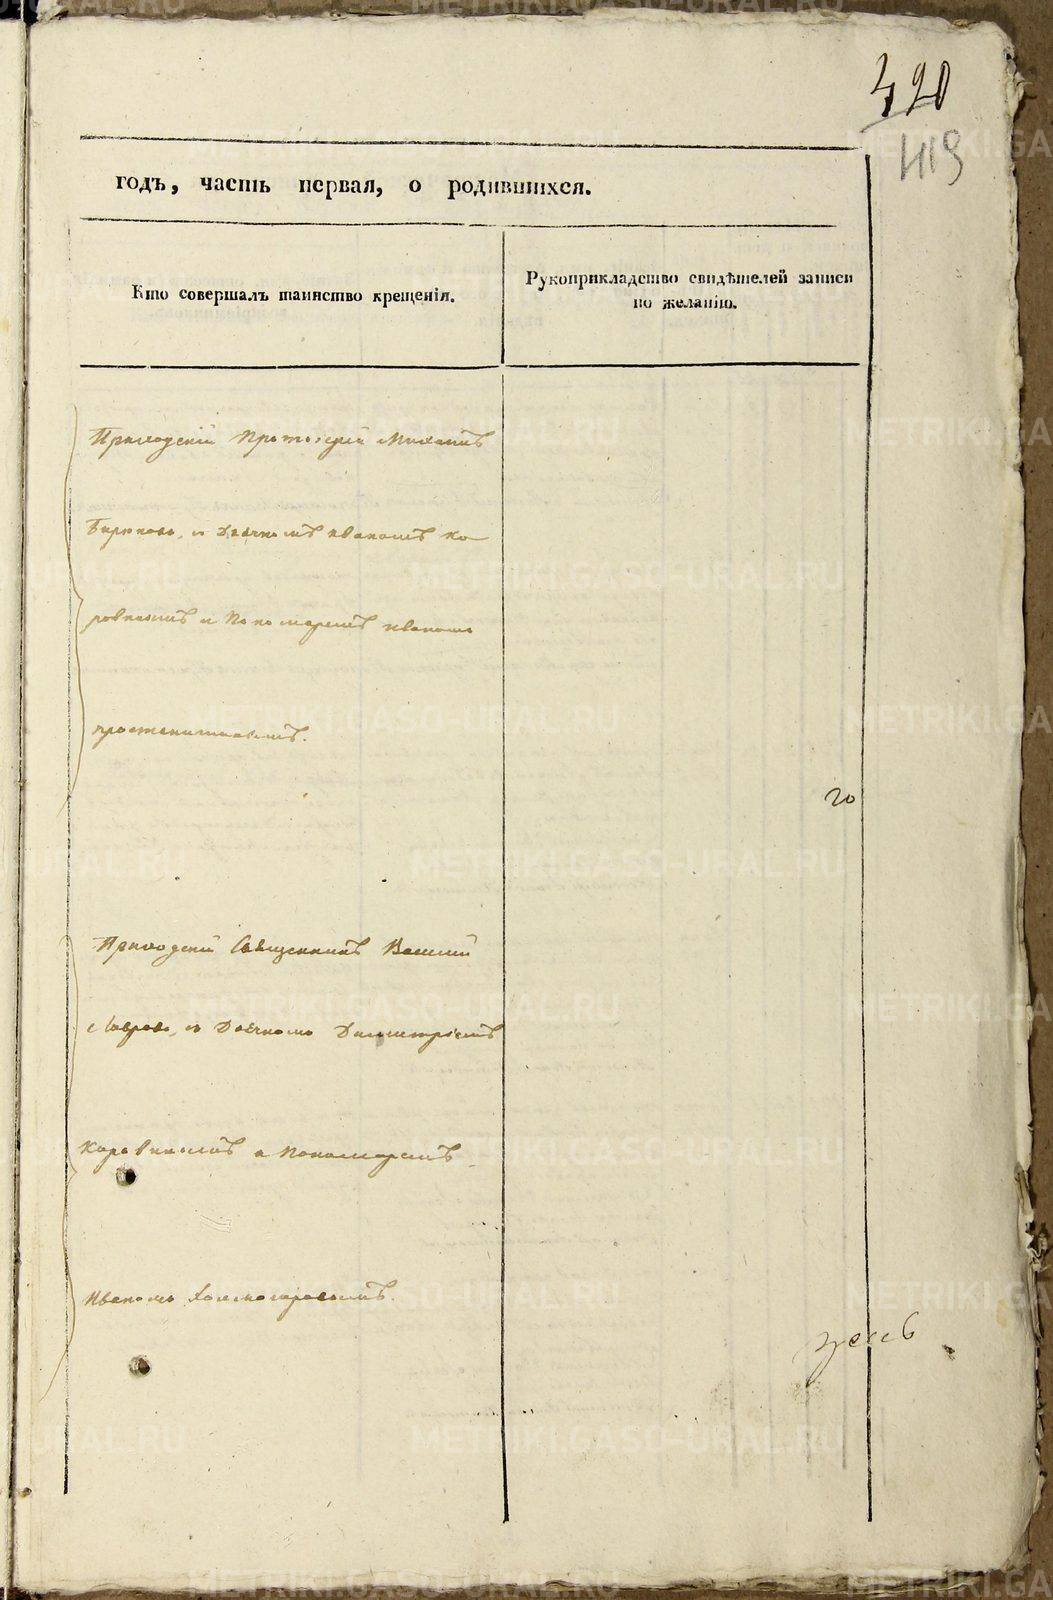 420
419
годъ, часть первая, о родившихся.
Кто совершалъ таинство крещенія.
Рукоприкладство свидѣтелей записи
по желанію.
Приходскій Протоіерей Михаилъ
Бирюковъ, съ Дьячкомъ Иваномъ Ко-
ровинымъ и Пономаремъ Иваномъ
20
Приходскій Священникъ Василий
Лавровъ, съ Дьячкомъ Димитріемъ
Коровинымъ и Пономаремъ
Иваномъ Холмогоровымъ.
METRIKI.GASO-URAL.RU